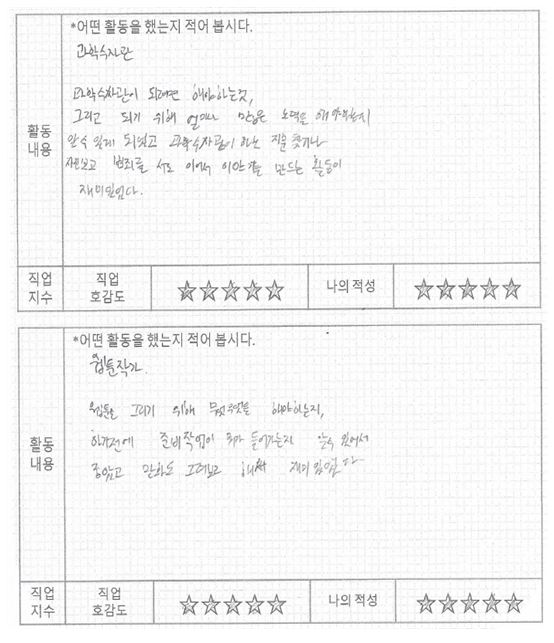 *어떤 활동을 했는지 적어 봅시다.
과학수사관
과학수사관이 되려면 해야하는것,
그리고 되기 위해 얼마나 많은 노력을 해야하는지
알수 있게 되었고 과학수사관이 하는 지문 찾거나
보고 범죄를 서로 이어서 이야기를 만드는 활동이
재미있었다.
활동
내용
직업
지수
직업
호감도
☆☆☆☆☆
나의 적성
☆☆☆☆☆
*어떤 활동을 했는지 적어 봅시다.
웹툰작가.
웹툰을 그리기 위해 무엇을 해야하는지,
하기전에 준비작업이 뭐가 들어가는지 알수 있어서
좋았고 만화도 그려보고 해서 재미있었다
활동
내용
직업
지수
직업
호감도
☆☆☆☆☆
나의 적성
☆☆☆☆☆